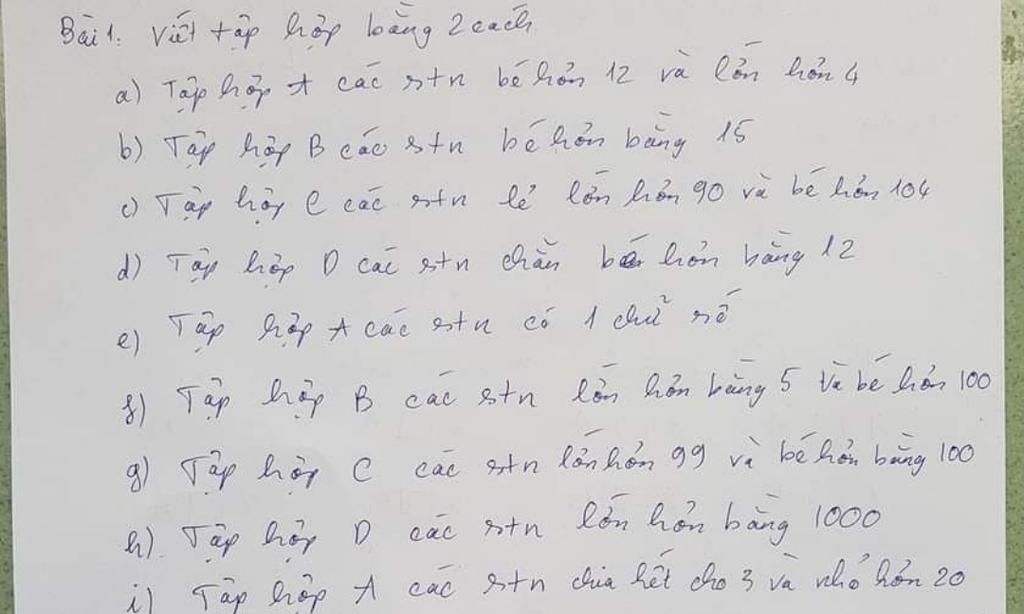 Bài 1. Viết tập hợp bằng 2 cách
a) Tập hợp A các stn bé hơn 12 và lớn hơn 4
b) Tập hợp B các stn bé hơn bằng 15
c) Tập hợp C các stn lẻ lớn hơn 90 và bé hơn 104
d) Tập hợp D các stn chẵn bé hơn bằng 12
e) Tập hợp A các stn có 1 chữ số
f) Tập hợp B các stn lớn hơn bằng 5 và bé hơn 100
g) Tập hợp C các stn lớn hơn 99 và bé hơn bằng 100
h) Tập hợp D các stn lớn hơn bằng 1000
i) Tập hợp A các stn chia hết cho 3 và nhỏ hơn 20